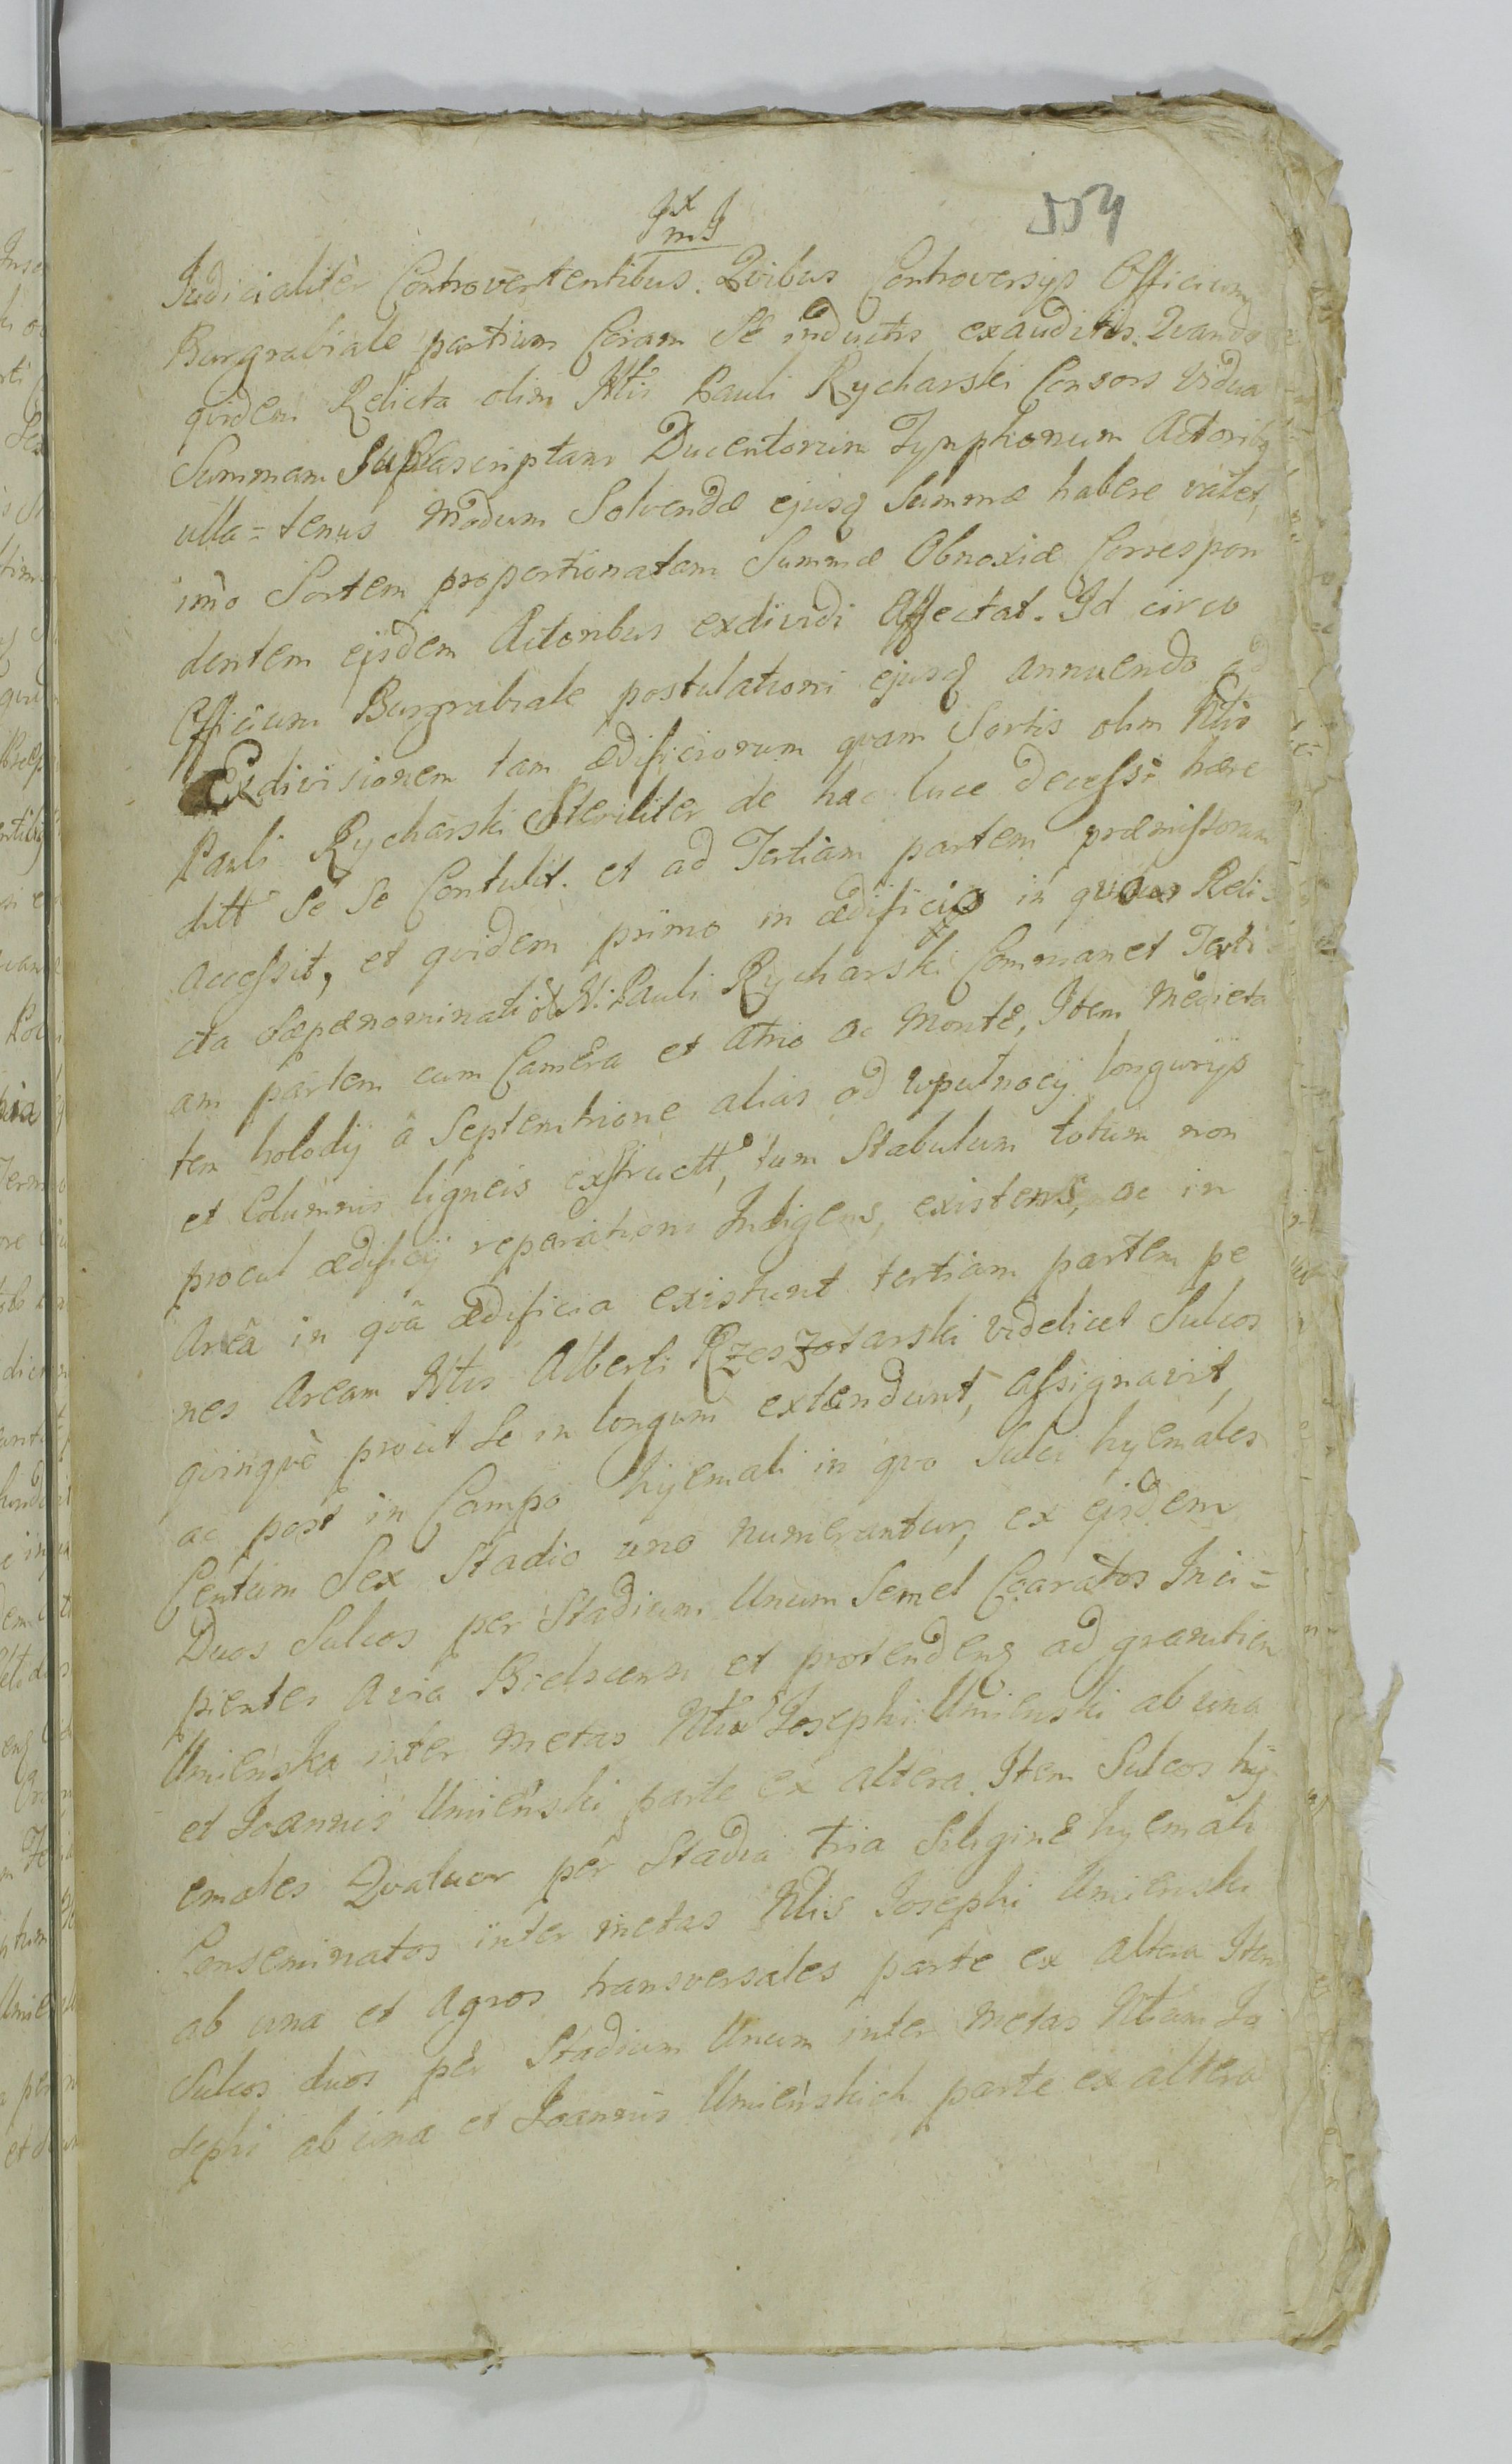 554
Judicialitèr Controvertentibus. Qvibus Controversijs Officium
Burgrabiale partium Coram Se inductis exauditis. Qvando
qvidem Relicta olim Nlis Pauli Rycharski Consors Vidua
Summam Suprascriptam Ducentorum Tymphonum Actoribq
ulla=tenus modum Solvendæ ejusq Summæ habere valet,
imò Sortem proportionatam Summæ Obnoxiæ Correspon
dentem ejsdem Actoribus exdividi Affectat. Id circo
Officium Burgrabiale postulationi ejusq annuendo ad
Exdivisionem tam ædificiorum qvam Sortis olim Nlis
Pauli Rycharski Steriliter de hac luce decessi hære
ditt Se Se Contulit. et ad Tertiam partem præmissorum
accessit, et qvidem primo in ædificio in Reli=
cta Sæpenominati N: Pauli Rycharski Commanet Terti
am partem cum Camera et atrio ac Monte, Item Medieta
tem holodij â Septemtrione alias od wputnocy longurijs
et Columnis ligneis exstructt, tum Stabulum totum non
procul ædificij reparationi Indigens, existens, ac in
Areâ in qvâ ædificia existunt tertiam partem pe
nes Aream Nlis Alberti Rzeszotarski videlicet Sulcos
qvinqvè prout Se in longum extendunt, assignavit,
ac post in Campo hyemali in qvo Sulci hyemales
Centum Sex Stadio uno numerantur, ex ejsdem
Duos Sulcos per Stadium Unum Semel Coaratos Inci=
pientes a via Bielscensi et protendens ad granitiem
Umieńska inter metas Josephi Umienski ab una
et Joannis Umieński parte ex altera. Item Sulcos hy
emales Qvatuor per Stadia tria Siliginè hyemali
Conseminatos inter metas Nlis Josephi Umienski
ab una et Agros transversales parte ex altera Item
Sulcos duos per Stadium Unum inter metas Jo
sephi ab una et Joannis Umieńskich parte ex altera